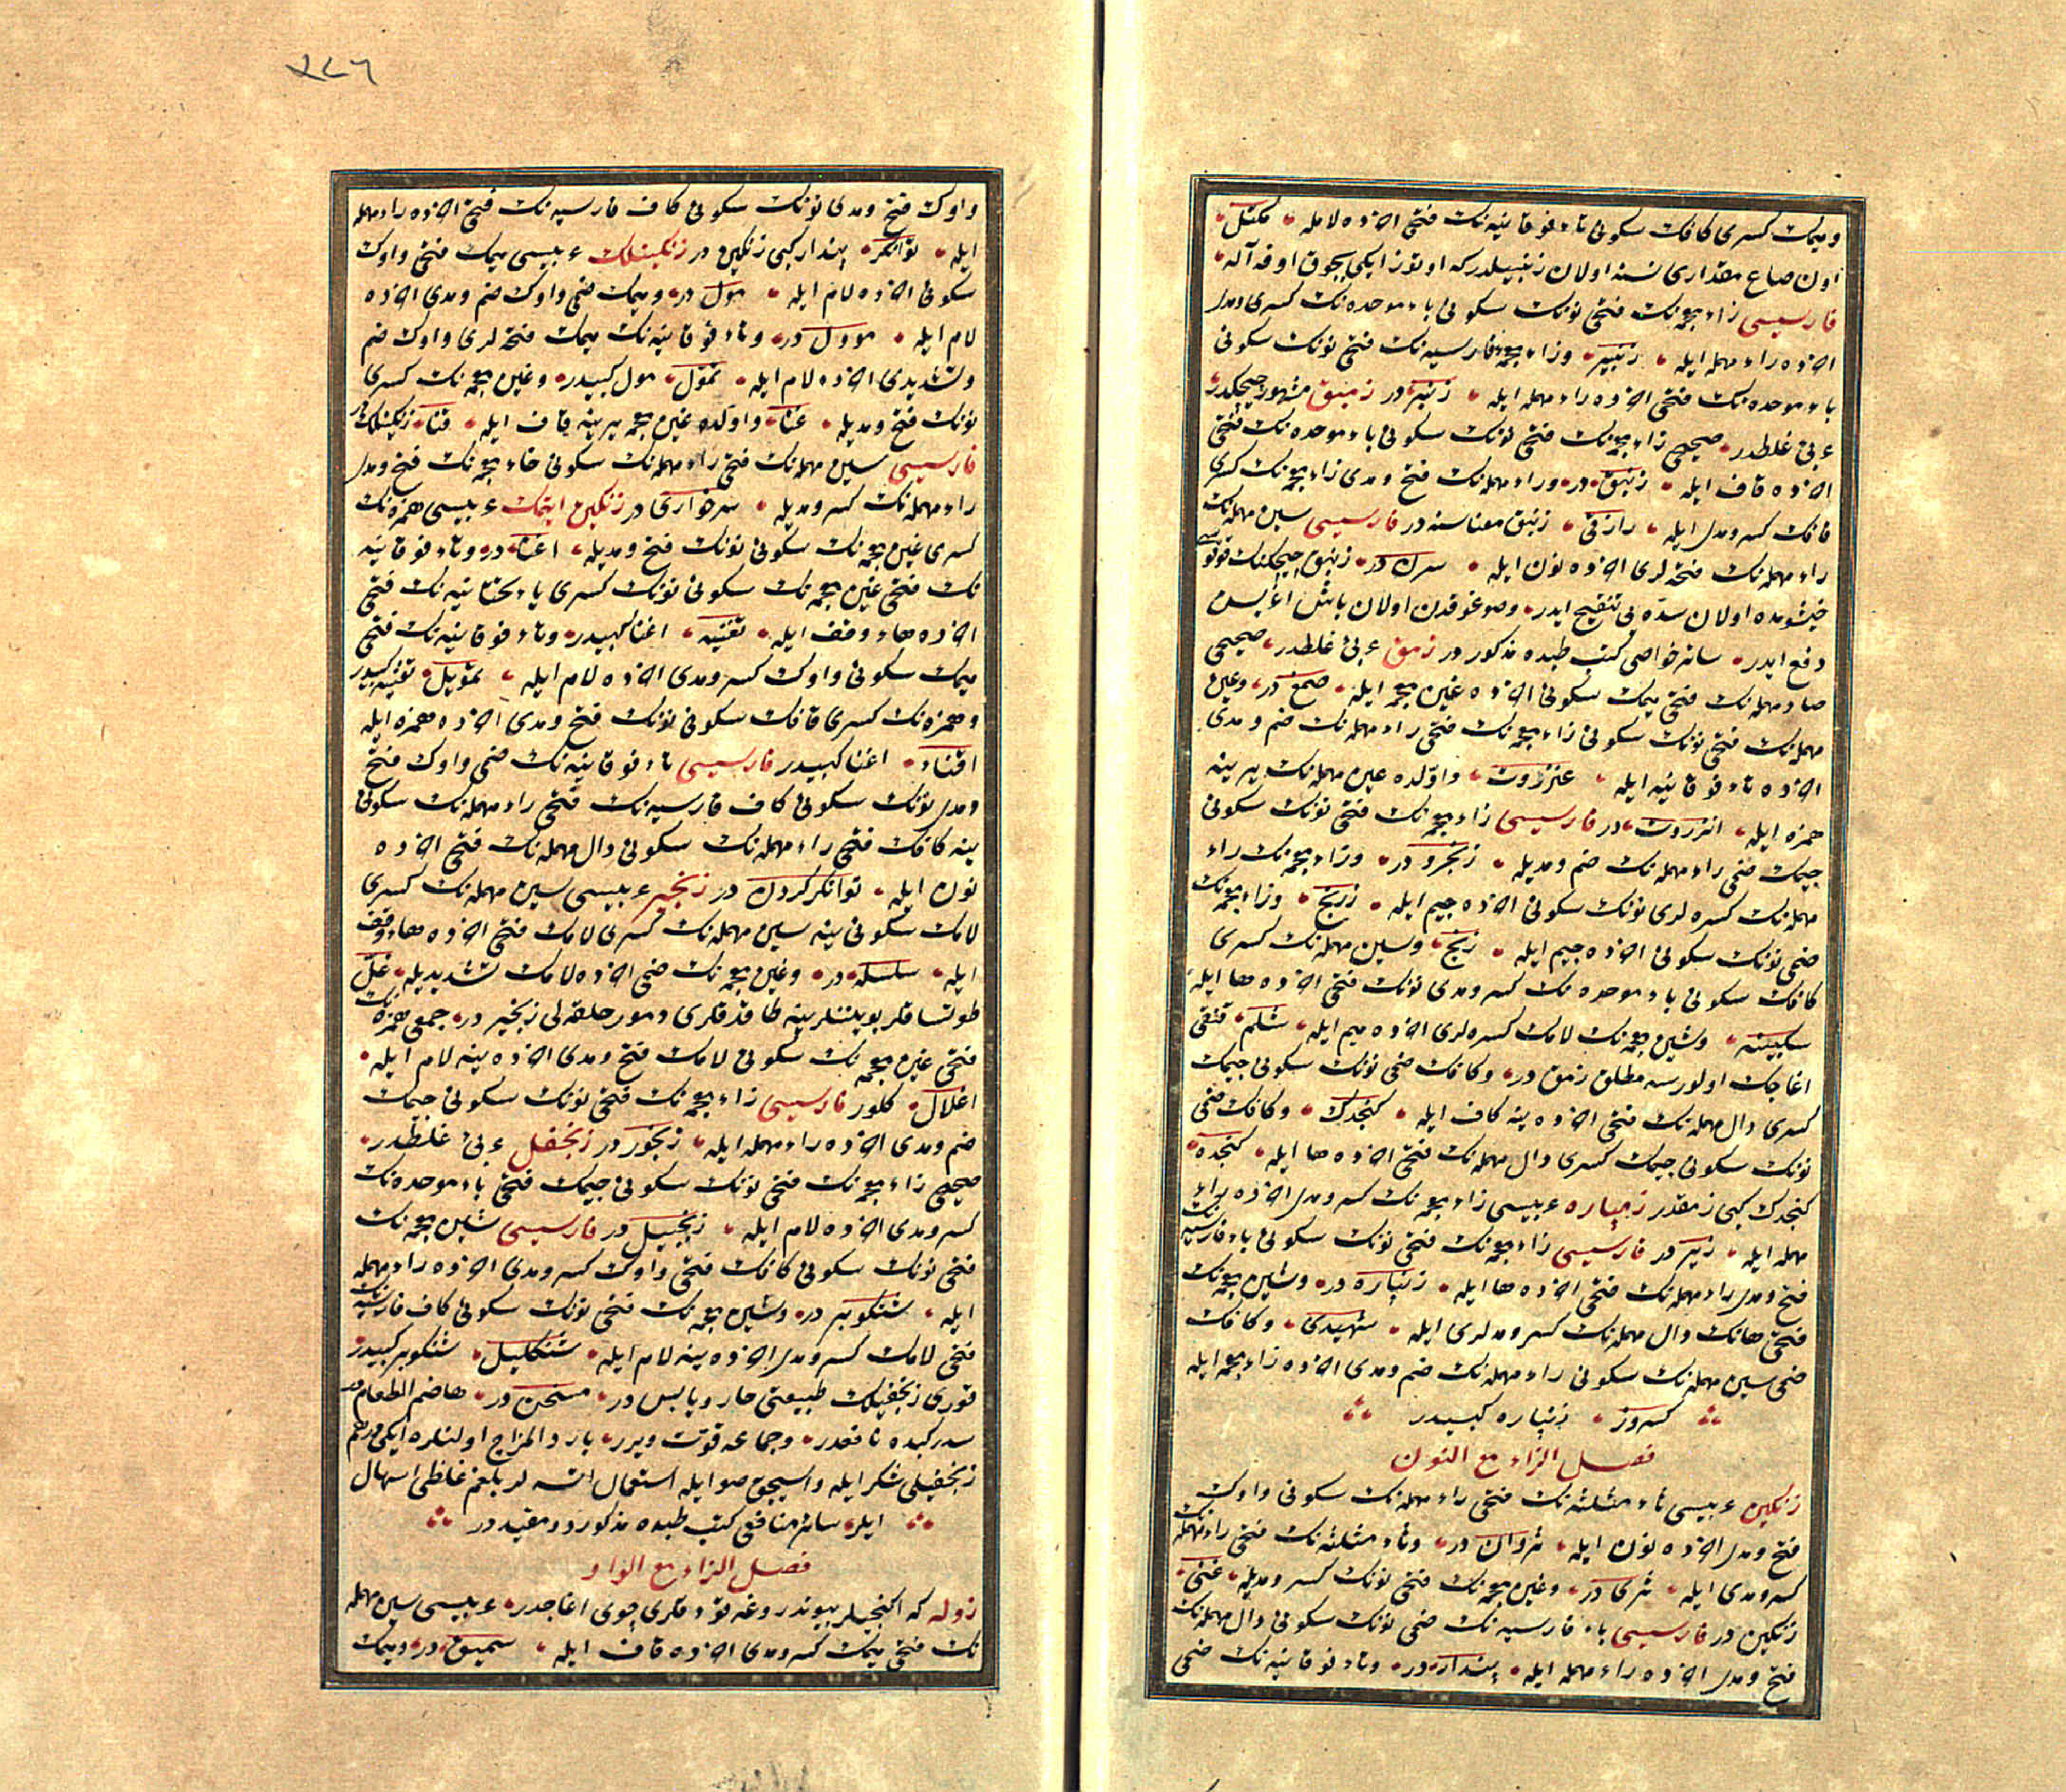 ومیمك كسری كافك سكونی تاء فوقانیه‌نك فتحی اخرده لامله مكتل
اون صاع مقداری نسنه اولان زنبیلدر كه اوتوز ایكی بچوق اوقه آلە
فارسیسی زاء معجمه‌نك فتحی نونك سكونی باء موحده‌نك كسری ومدی
اخرده راء مهمله ایله زنبیر وزاء معجمهٔ فارسیه‌نك فتحی نونك سكونی
باء موحده‌نك فتحی اخرده راء مهمله ایله زنبر در زمبق مشهور چیچكدر
عربی غلطدر صحیحی زاء معجمه‌نك فتحی نونك سكونی باء موحده‌نك فتحی
اخرده قاف ایله زنبق در وراء مهمله‌نك فتح ومدی زاء معجمه‌نك كسری
قافك كسر ومدی ایله رازقی زنبق معناسنه در فارسیسی سین مهمله‌نك
راء مهمله‌نك فتحه‌لری اخرده نون ایله سرن در زنبق چیچكنك قوقوسی
خیشومده اولان سدّه‌یی تنقیح ایدر وصوغوقدن اولان باش اغریسن
دفع ایدر سائر خواصی كتب طبده مذكور در زمق عربی غلطدر صحیحی
صاد مهمله‌نك فتحی میمك سكونی اخرده غین معجمه ایله صمغ در وعین
مهمله‌نك فتحی نونك سكونی زاء معجمه‌نك فتحی راء مهمله‌نك ضم ومدی
اخرده تاء فوقانیه ایله عنزروت واوّلده عین مهمله‌نك یرینه
همزه ایله انزروت در فارسیسی زاء معجمه‌نك فتحی نونك سكونی
جیمك ضمی راء مهمله‌نك ضم ومدیله زنجرو در وزاء معجمه‌نك راء
مهمله‌نك كسره‌لری نونك سكونی اخرده جیم ایله زرنج وزاء معجمه‌نك
ضمی نونك سكونی اخرده جیم ایله زنج وسین مهمله‌نك كسری
كافك سكونی باء موحده‌نك كسر ومدی نونك فتحی اخرده ها ایله
سكبینه وشین معجمه‌نك لامك كسره‌لری اخرده میم ایله شلم قنغی
اغاجك اولورسه مطلق زمق در وكافك ضمی نونك سكونی جیمك
كسری دال مهمله‌نك فتحی اخرده ینه كاف ایله كنجدك وكافك ضمی
نونك سكونی جیمك كسری دال مهمله‌نك فتحی اخرده ها ایله كنجده
كنجدك كبی زمقدر زمپاره عربیسی زاء معجمه‌نك كسر ومدی اخرده راء
مهمله ایله زیر در فارسیسی زاء معجمه‌نك فتحی نونك سكونی باء فارسیه‌نك
فتح ومدی راء مهمله‌نك فتحی اخرده ها ایله زنپاره در وشین معجمه‌نك
فتحی هانك دال مهمله‌نك كسر ومدلری ایله شهیدی وكافك
ضمی سین مهمله‌نك سكونی راء مهمله‌نك ضم ومدی اخرده زاء معجمه ایله
كسروز زنپاره كبیدر
فصل الزاء مع النون
زنكین عربیسی ثاء مثلثه‌نك فتحی راء مهمله‌نك سكونی واوك
فتح ومدی اخرده نون ایله ثروان در وثاء مثلثه‌نك فتحی راء مهمله‌نك
كسر ومدی ایله ثری در وغین معجمه‌نك فتحی نونك كسر ومدیله غنی
زنكین در فارسیسی باء فارسیه‌نك ضمی نونك سكونی دال مهمله‌نك
فتح ومدی اخرده راء مهمله ایله پندار در وتاء فوقانیه‌نك ضمی
٢٤٦
واوك فتح ومدی نونك سكونی كاف فارسیه‌نك فتحی اخرده راء مهمله
ایله توانكر پندار كبی زنكین در زنكینلك عربیسی میمك فتحی واوك
سكونی اخرده لام ایله مول در ومیمك ضمی واوك ضم ومدی اخرده
لام ایله موول در وتاء فوقانیه‌نك میمك فتحه‌لری واوك ضم
وتشدیدی اخرده لام ایله تموّل مول كبیدر وغین معجمه‌نك كسری
نونك فتح ومدیله غناء واوّلده غین معجمه یرینه قاف ایله قناء زنكینلك در
فارسیسی سین مهمله‌نك فتحی راء مهمله‌نك سكونی خاء معجمه‌نك فتح ومدی
راء مهمله‌نك كسر ومدیله سرخواری در زنكین ایتمك عربیسی همزه‌نك
كسری غین معجمه‌نك سكونی نونك فتح ومدیله اغناء در وتاء فوقانیه
نك فتحی غین معجمه‌نك سكونی نونك كسری یاء تحتانیه‌نك فتحی
اخرده هاء وقف ایله تغنیه اغنا كبیدر وتاء فوقانیه‌نك فتحی
میمك سكونی واوك كسر ومدی اخرده لام ایله تمویل تغنیه كبیدر
وهمزه‌نك كسری قافك سكونی نونك فتح ومدی اخرده همزه ایله
اقناء اغنا كبیدر فارسیسی تاء فوقانیه‌نك ضمی واوك فتح
ومدی نونك سكونی كاف فارسیه‌نك فتحی راء مهمله‌نك سكونی
ینه كافك فتحی راء مهمله‌نك سكونی دال مهمله‌نك فتحی اخرده
نون ایله توانكر كردن در زنجیر عربیسی سین مهمله‌نك كسری
لامك سكونی ینه سین مهمله‌نك كسری لامك فتحی اخرده هاء وقف
ایله سلسله در وغین معجمه‌نك ضمی اخرده لامك تشدیدیله غلّ
طوتساقلر بوینلرینه طاقدقلری دمور حلقه‌لی زنجیر در جمعی همزه‌نك
فتحی غین معجمه‌نك سكونی لامك فتح ومدی اخرده ینه لام ایله
اغلال كلور فارسیسی زاء معجمه‌نك فتحی نونك سكونی جیمك
ضم ومدی اخرده راء مهمله ایله زنجور در زنجفیل عربی غلطدر
صحیحی زاء معجمه‌نك فتحی نونك سكونی جیمك فتحی باء موحده‌نك
كسر ومدی اخرده لام ایله زنجبیل در فارسیسی شین معجمه‌نك
فتحی نونك سكونی كافك فتحی واوك كسر ومدی اخرده راء مهمله
ایله شنكویر در وشین معجمه‌نك فتحی نونك سكونی كاف فارسیه‌نك
فتحی لامك كسر ومدی اخرده ینه لام ایله شنكلیل شنكویر كبیدر
قوری زنجفیلك طبیعتی حار ویابس در مسخن در هاضم الطعام در
سدر كبده نافعدر وجماعه قوّت ویرر بارد المزاج اولنلره ایكی درهم
زنجفیلی شكر ایله واسیجق صو ایله استعمال اتسه‌لر بلغم غلظی اسهال
ایلر سائر منافعی كتب طبده مذكور ومقیددر
فصل الزاء مع الواو
زوله كه اكنجیلر بیوندروغه قودقلری چوی اغاجدر عربیسی سین مهمله
نك فتحی میمك كسر ومدی اخرده قاف ایله سمیق در ومیمك